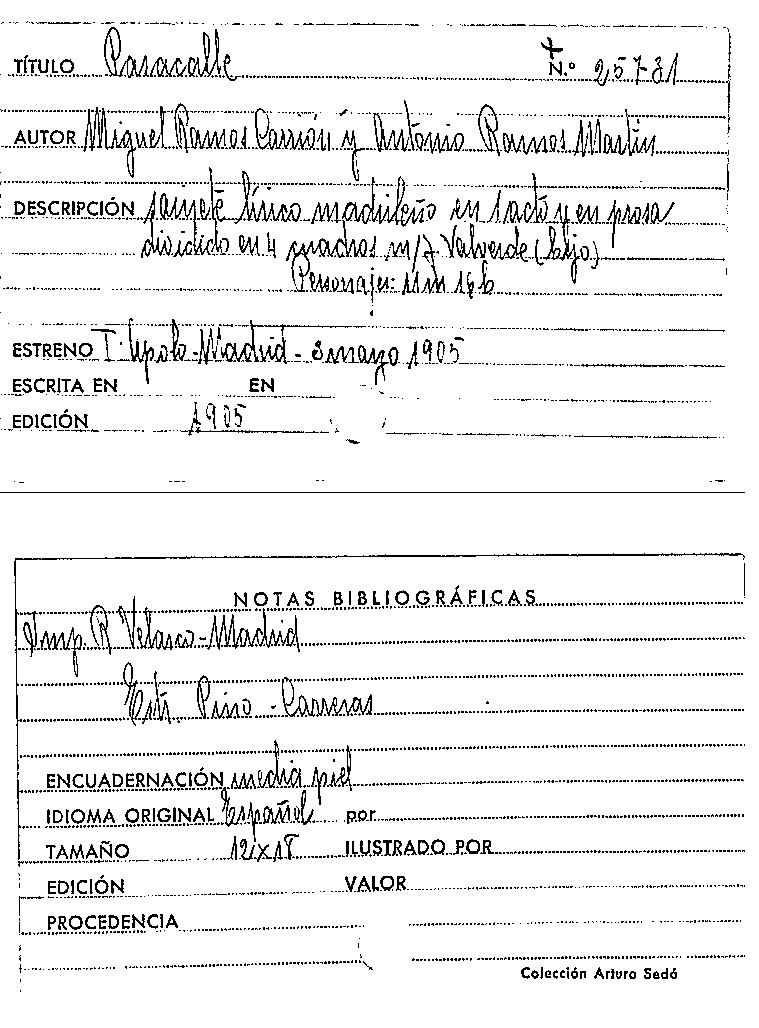 TÍTULO Pasacalle N.º 25731
AUTOR Miguel Ramos Carrión y Antonio Ramos Martín
DESCRIPCIÓN sainete lírico madrileño en 1 acto y en prosa
dividido en 4 cuadros m/J. Valverde (hijo)
Personajes: 11m 16h
ESTRENO T. Apolo-Madrid- 3 mayo 1905
ESCRITA EN EN
EDICIÓN 1905
NOTAS BIBLIOGRÁFICAS
Imp. R Velasco-Madrid
Estr. Pino - Carreras
ENCUADERNACIÓN media piel
IDIOMA ORIGINAL Español por
TAMAÑO 12x18 ILUSTRADO POR
EDICIÓN VALOR
PROCEDENCIA
Colección Arturo Sedó